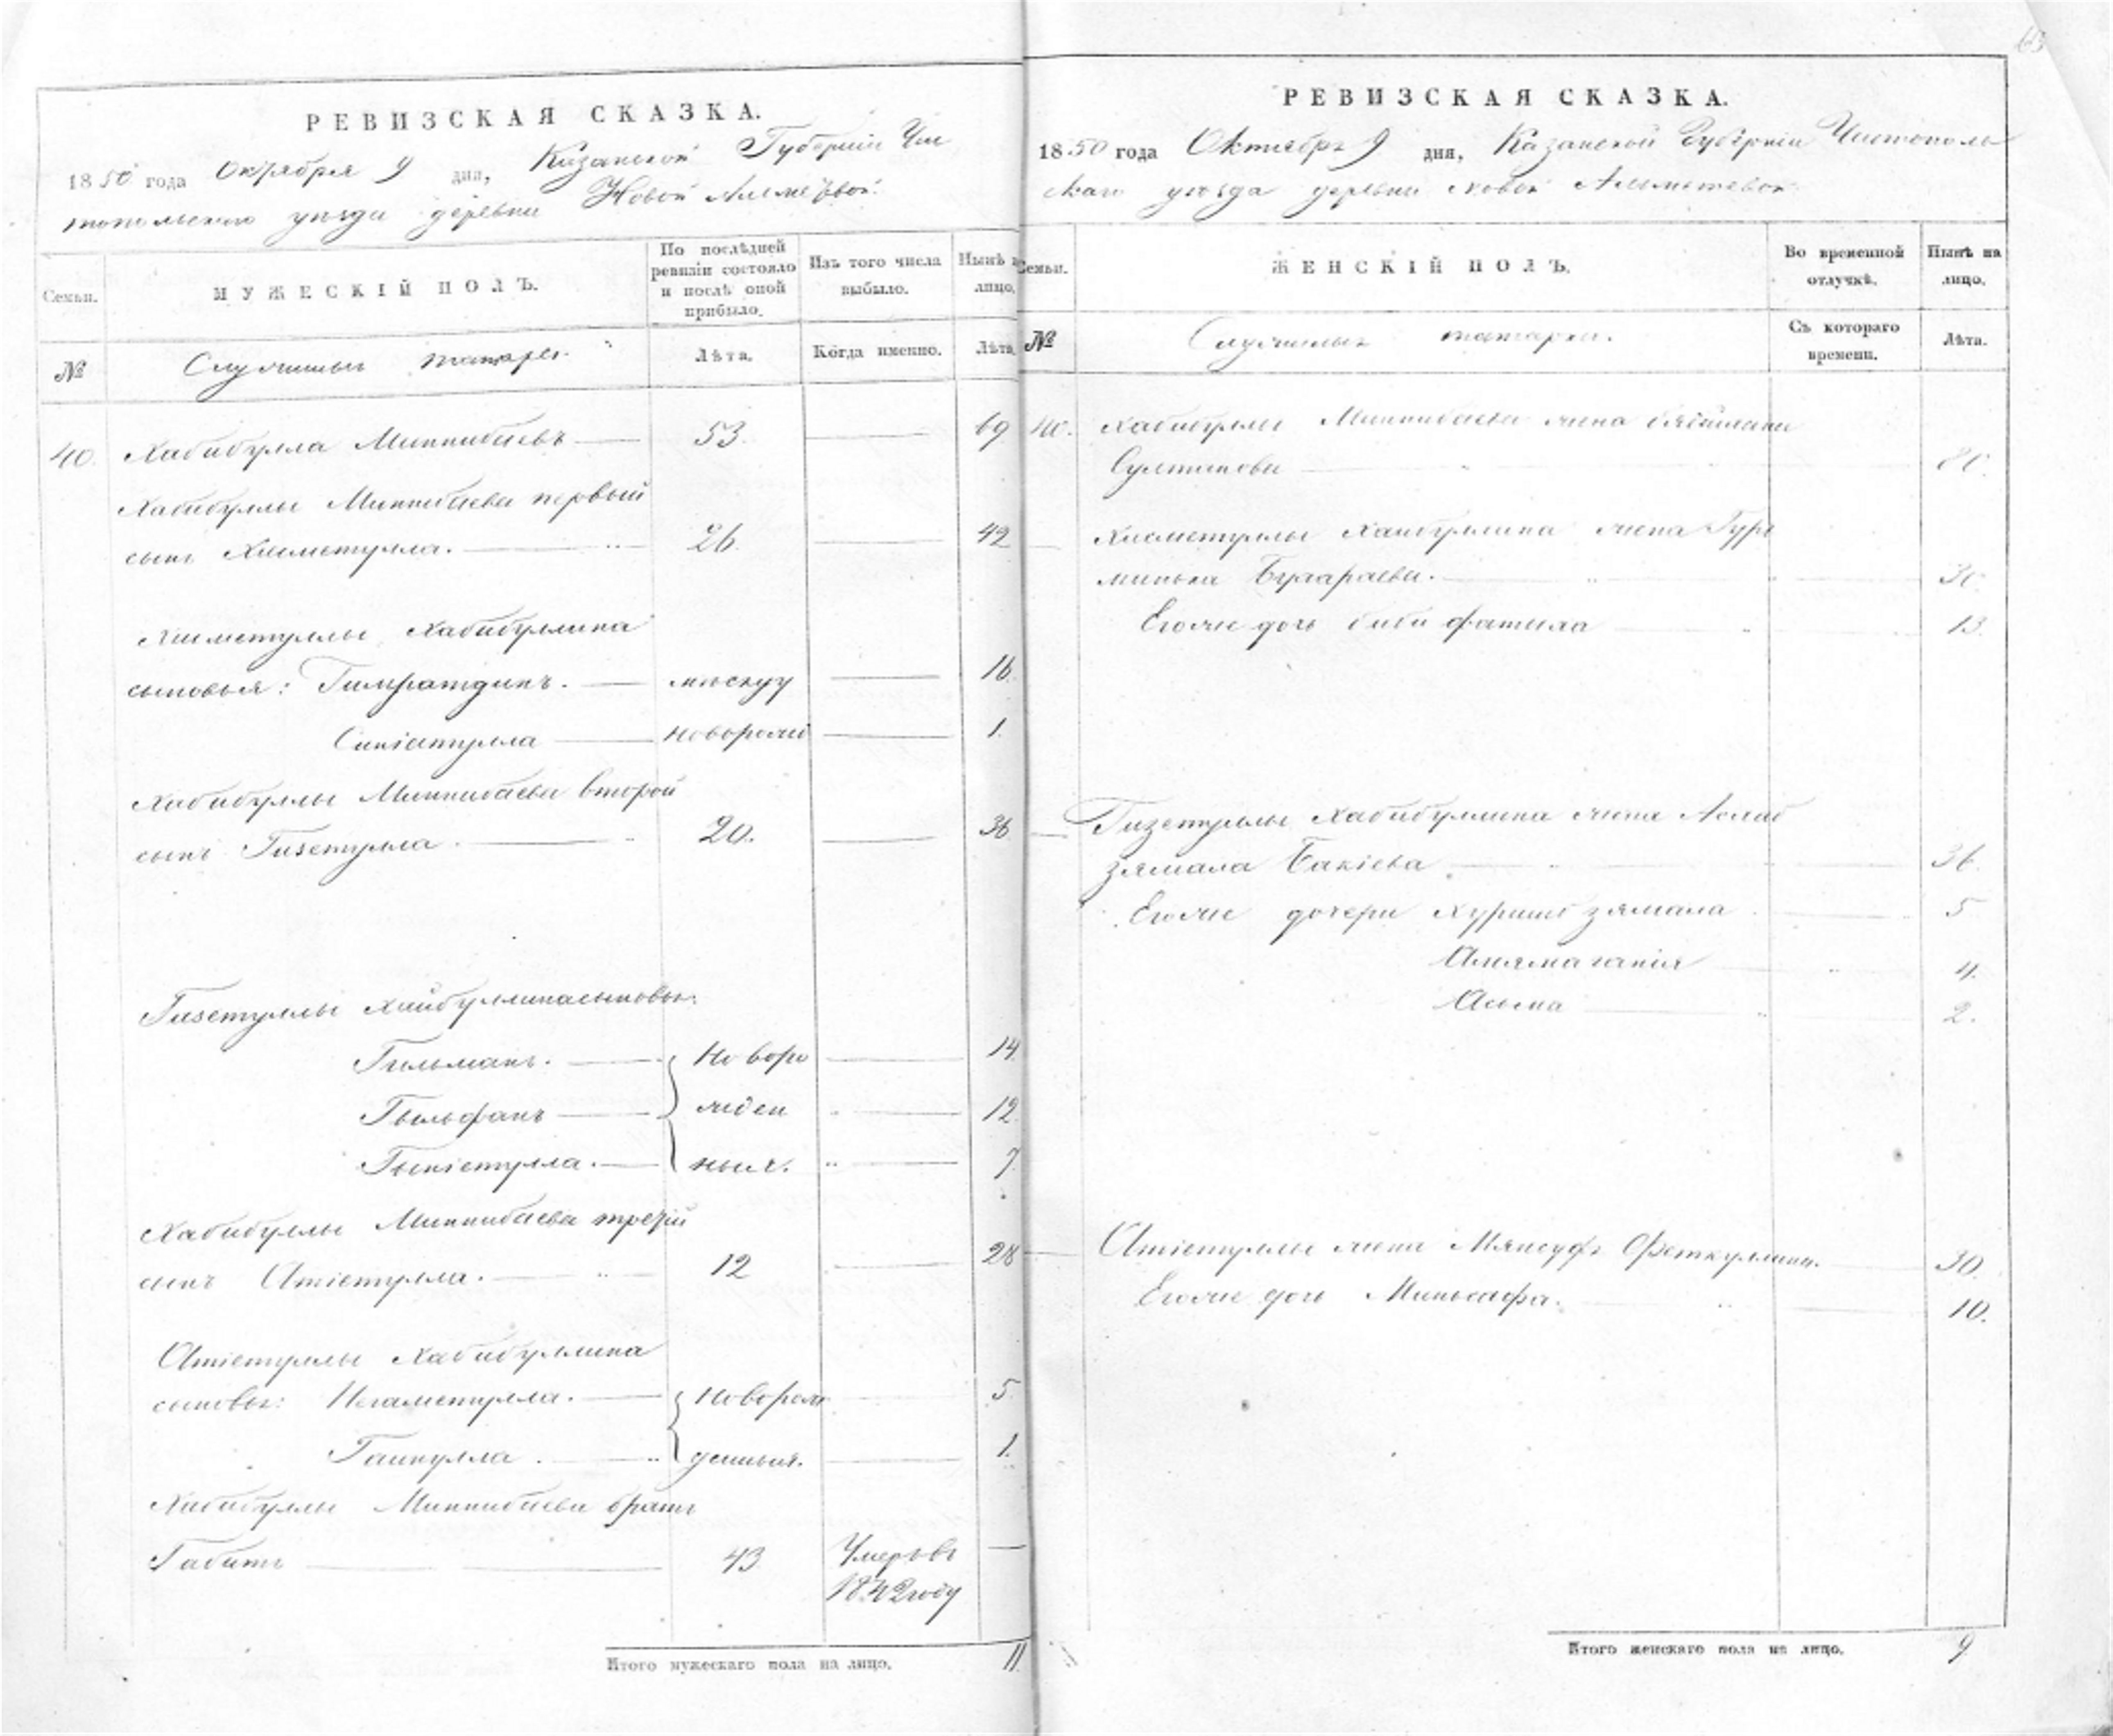 63
РЕВИЗСКАЯ СКАЗКА.
1850 года Октября 9 дня, Казанской Губерніи Чис
топольскаго уезда деревни Новой Альметьвой.
Семьи.
МУЖЕСКІЙ ПОЛЪ.
По послѣдней ревизіи состояло и послѣ оной прибыло.
Изъ того числа выбыло.
Нынѣ на лицо.
№
Служилыхъ татаръ.
Лѣта.
Когда именно.
Лѣта.
40. Хабибулла Миннибаевъ 53. 69
Хабибуллы Миннибаева первый
сынъ Хисметулла. 26. 42
Хисметуллы Хабибуллина
сыновья: Гимратдинъ. 16.
новорожд 1.
Хабибуллы Миннибаева второй
сынъ Гизетулла. 20. 36
Гизетуллы Хайбуллина сыновья:
Гильманъ. Новоро 14.
Гыльфанъ жден 12.
ныя. 7.
Хабибуллы Миннибаева третій
сынъ Атіетулла. 12 28
Атіетуллы Хабибуллина
сыновья: Негаметулла. Новорож 5.
Гайнулла. денныя. 1.
Хабибуллы Миннибаева братъ
Габитъ 43. Умеръ въ
1842 году
Итого мужескаго пола на лицо. 11.
РЕВИЗСКАЯ СКАЗКА.
1850 года Октября 9 дня, Казанской Губерніи Чистополь
скаго уезда деревни Новой Альметевой.
Семьи.
ЖЕНСКІЙ ПОЛЪ.
Во временной отлучкѣ.
Нынѣ на лицо.
№
Служилыхъ татаръ.
Съ котораго времени.
Лѣта.
40. Хабибуллы Миннибаева жена
Султанова
Хисметуллы Хайбуллина жена
30.
Егоже дочь Биби Фатыма 13.
Гизетуллы Хабибуллина жена
зямала Бакіева 36.
Егоже дочери зямала 5
4.
Асьма 2.
Атіетуллы жена Феткуллина. 30.
Егоже дочь Миньсафа. 10.
Итого женскаго пола на лицо. 9